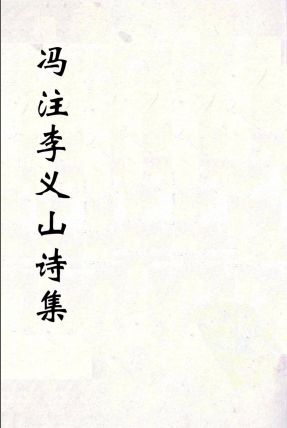 冯注李义山诗集